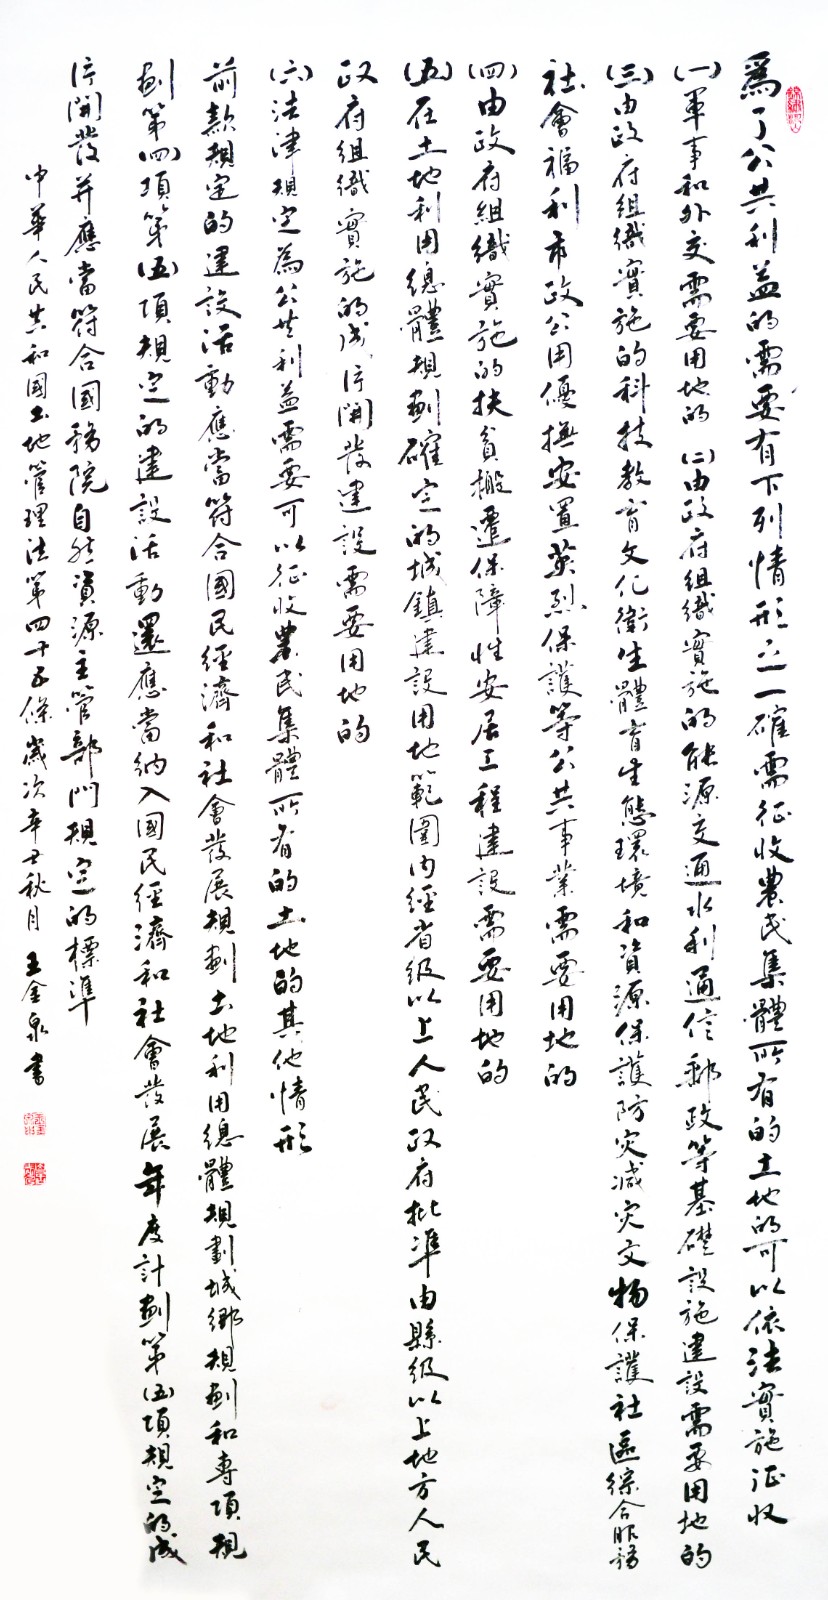 為了公共利益的需要有下列情形之一確需征收農民集體所有的土地的可以依法實施征收
(一)軍事和外交需要用地的(二)由政府組織實施的能源交通水利通信郵政等基礎設施建設需要用地的
(三)由政府組織實施的科技教育文化衛生體育生態環境和資源保護防災減災文物保護社區綜合服務
社會福利市政公用優撫安置英烈保護等公共事業需要用地的
(四)由政府組織實施的扶貧搬遷保障性安居工程建設需要用地的
(五)在土地利用總體規劃確定的城鎮建設用地範圍內經省級以上人民政府批準由縣級以上地方人民
政府組織實施的成片開發建設需要用地的
(六)法律規定為公共利益需要可以征收農民集體所有的土地的其他情形
前款規定的建設活動應當符合國民經濟和社會發展規劃土地利用總體規劃城鄉規劃和專項規
劃第(四)項第(五)項規定的建設活動還應當納入國民經濟和社會發展年度計劃第(五)項規定的成
片開發并應當符合國務院自然資源主管部門規定的標準
中華人民共和國土地管理法第四十五條歲次辛丑秋月 王金泉書